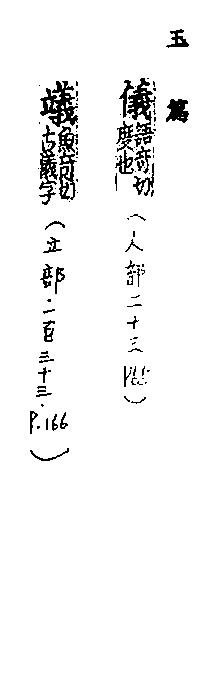 玉篇
儀語奇切度也(人部二十三P.65)
䗑魚奇切古儀字(立部.一百三十三.P.166)